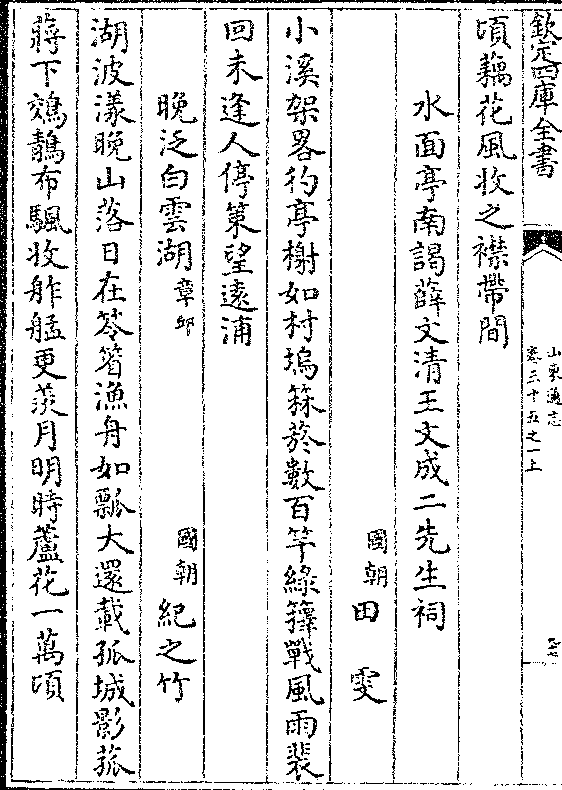 欽定四庫全書
山東通志
卷三十五之一上
頃藕花風收之襟帶間
水面亭南謁薛文清王文成二先生祠
國朝 田雯
小溪架畧彴亭榭如村塢箖菸數百竿綠籜戰風雨裴
回未逢人停策望遠浦
晚泛白雲湖章邱
國朝 紀之竹
湖波漾晚山落日在笭箵漁舟如瓢大還載孤城影菰
蔣下鵁鶄布颿收舴艋更羨月明時蘆花一萬頃